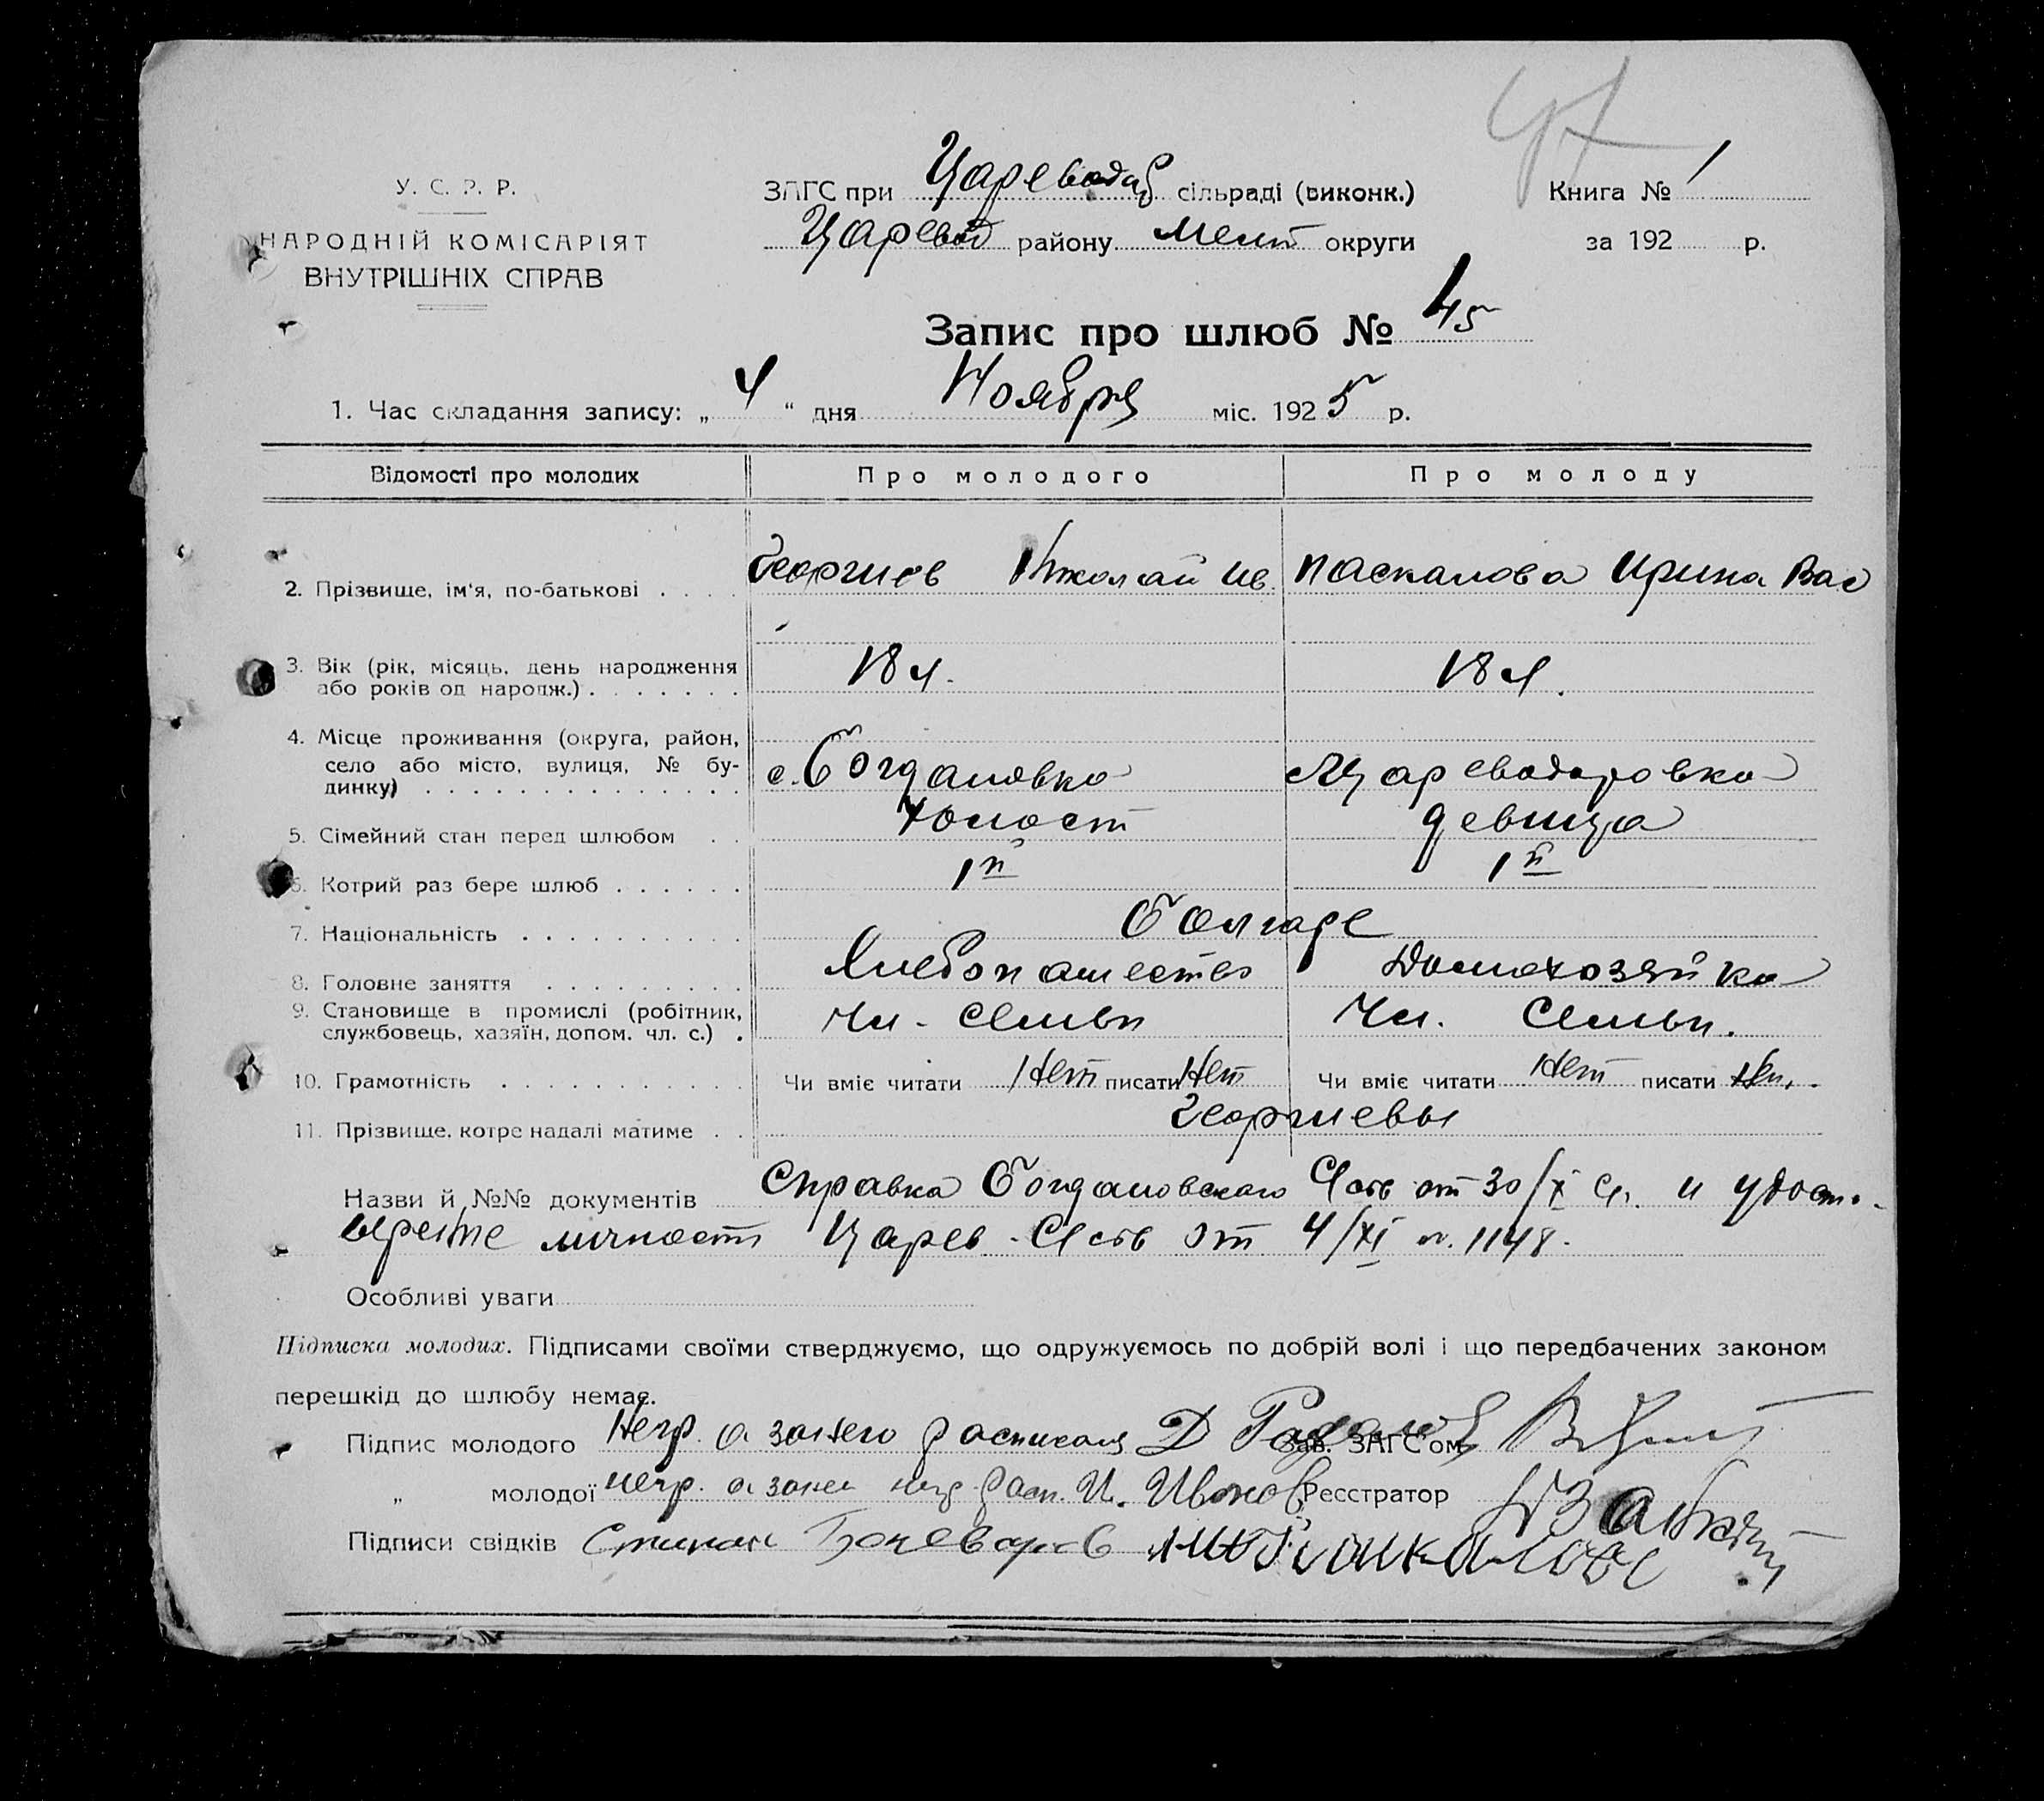 47
У. С. Р. Р.
НАРОДНІЙ КОМІСАРІЯТ
ВНУТРІШНІХ СПРАВ
ЗАГС при Цареводаᲂ сільраді (виконк.)
Царевод району Мелит округи
Книга № 1
за 192 р.
Запис про шлюб № 45
1. Час складання запису: „ 4 “ дня Ноября міс. 1925 р.
Відомості про молодих Про молодого Про молоду
2. Прізвище, ім'я, по-батькові . . . . Георгиев Николай Ив. Паскалова Ирина Вас
3. Вік (рік, місяць, день народження
або років од народж.) . . . . . . . 18 л. 18 л.
4. Місце проживання (округа, район,
село або місто, вулиця, № бу-
динку) . . . . . . . . . . . . . . с. Богдановка с. Цареводаровка
5. Сімейний стан перед шлюбом . . холост девица
6. Котрий раз бере шлюб . . . . . . 1й 1й
7. Національність . . . . . . . . . . Болгаре
8. Головне заняття . . . . . . . . . Хлебопашество Домохозяйка
9. Становище в промислі (робітник,
службовець, хазяїн, допом. чл. с.) . Чл. Семьи Чл. Семьи.
10. Грамотність . . . . . . . . . . . Чи вміє читати Нет писати Нет Чи вміє читати Нет писати Нет.
11. Прізвище, котре надалі матиме . . Георгиевы
Назви й №№ документів Справка Богдановского от 30/X и удост.
личности Царев. от 4/XI 1148.
Особливі уваги
Підписка молодих. Підписами своїми стверджуємо, що одружуємось по добрій волі і що передбачених законом
перешкід до шлюбу немає.
Підпис молодого Негр. а за него расписался Д Зав. ЗАГС'ом
„ молодої негр. а за нее расп. И. Иванов Реєстратор
Підписи свідків